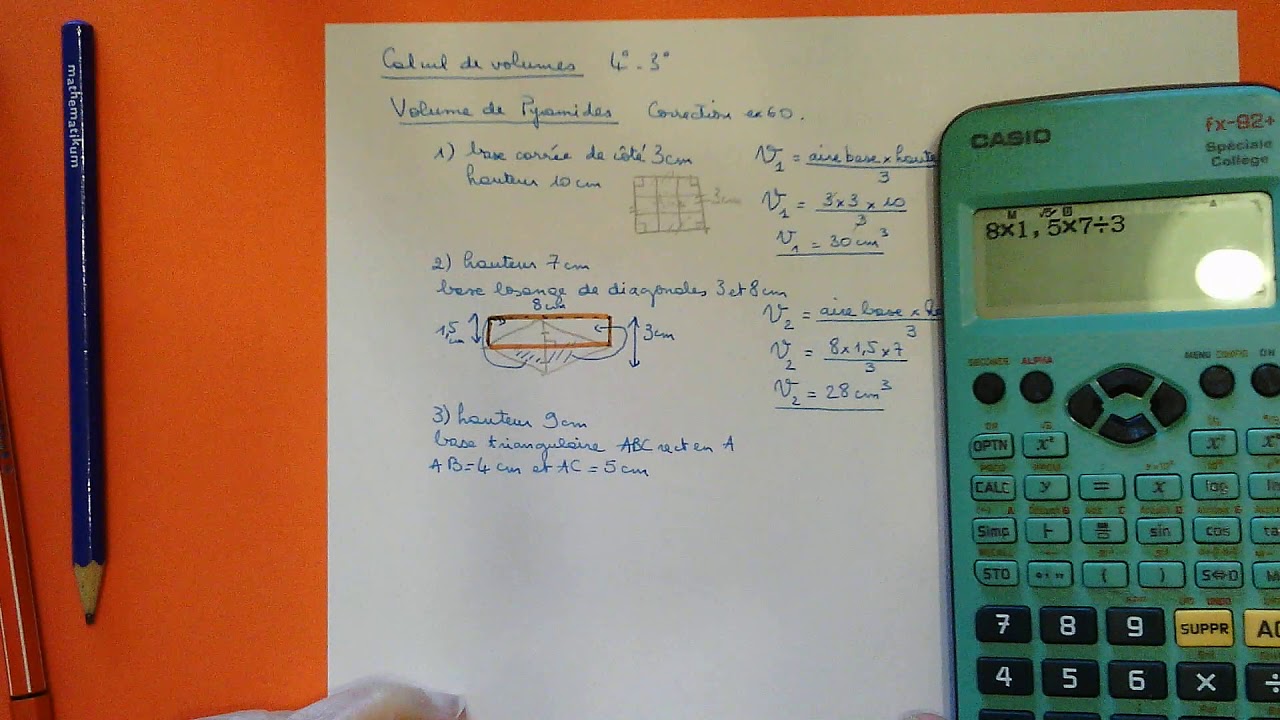 mathematikum
Calcul de volumes 4° - 3°
Volume de Pyramides Correction ex 60.
1) base carrée de côté 3cm
hauteur 10cm
3cm
V1 = aire base x haute
3
V1 = 3x3x10
3
V1 = 30cm³
2) hauteur 7cm
base losange de diagonales 3 et 8cm
8cm
1,5 cm
3cm
V2 = aire base x
3
V2 = 8x1,5x7
3
V2 = 28cm³
3) hauteur 9cm
base triangulaire ABC rect en A
AB=4cm et AC=5cm
CASIO
fx-92+
Spéciale
Collège
8×1,5×7÷3
SECONDE ALPHA
MENU CONFIG ON
OPTN x²
CALC y = x log
Simp sin cos
STO ( ) S⇔D M
7 8 9 SUPPR AC
4 5 6 × ÷